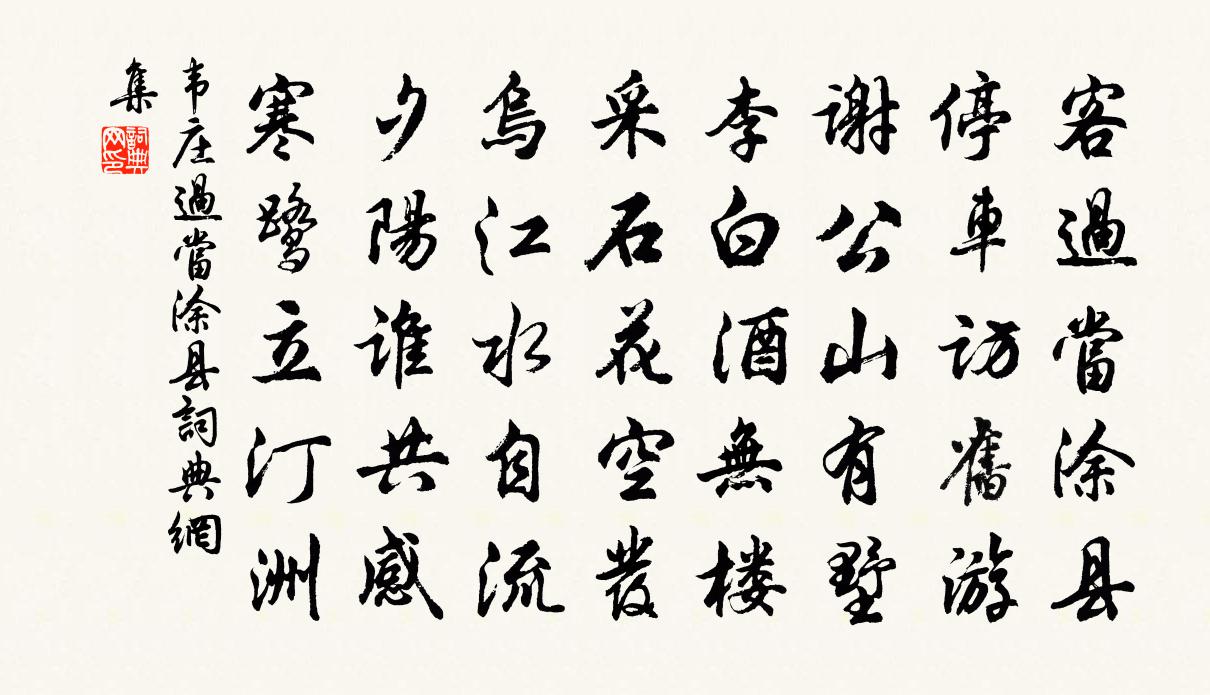 客過當涂县
停車訪舊游
謝公山有墅
李白酒無楼
采石花空發
烏江水自流
夕陽誰共感
寒鹭立汀洲
韦庄過當涂县詞典網
集
詞典
网印